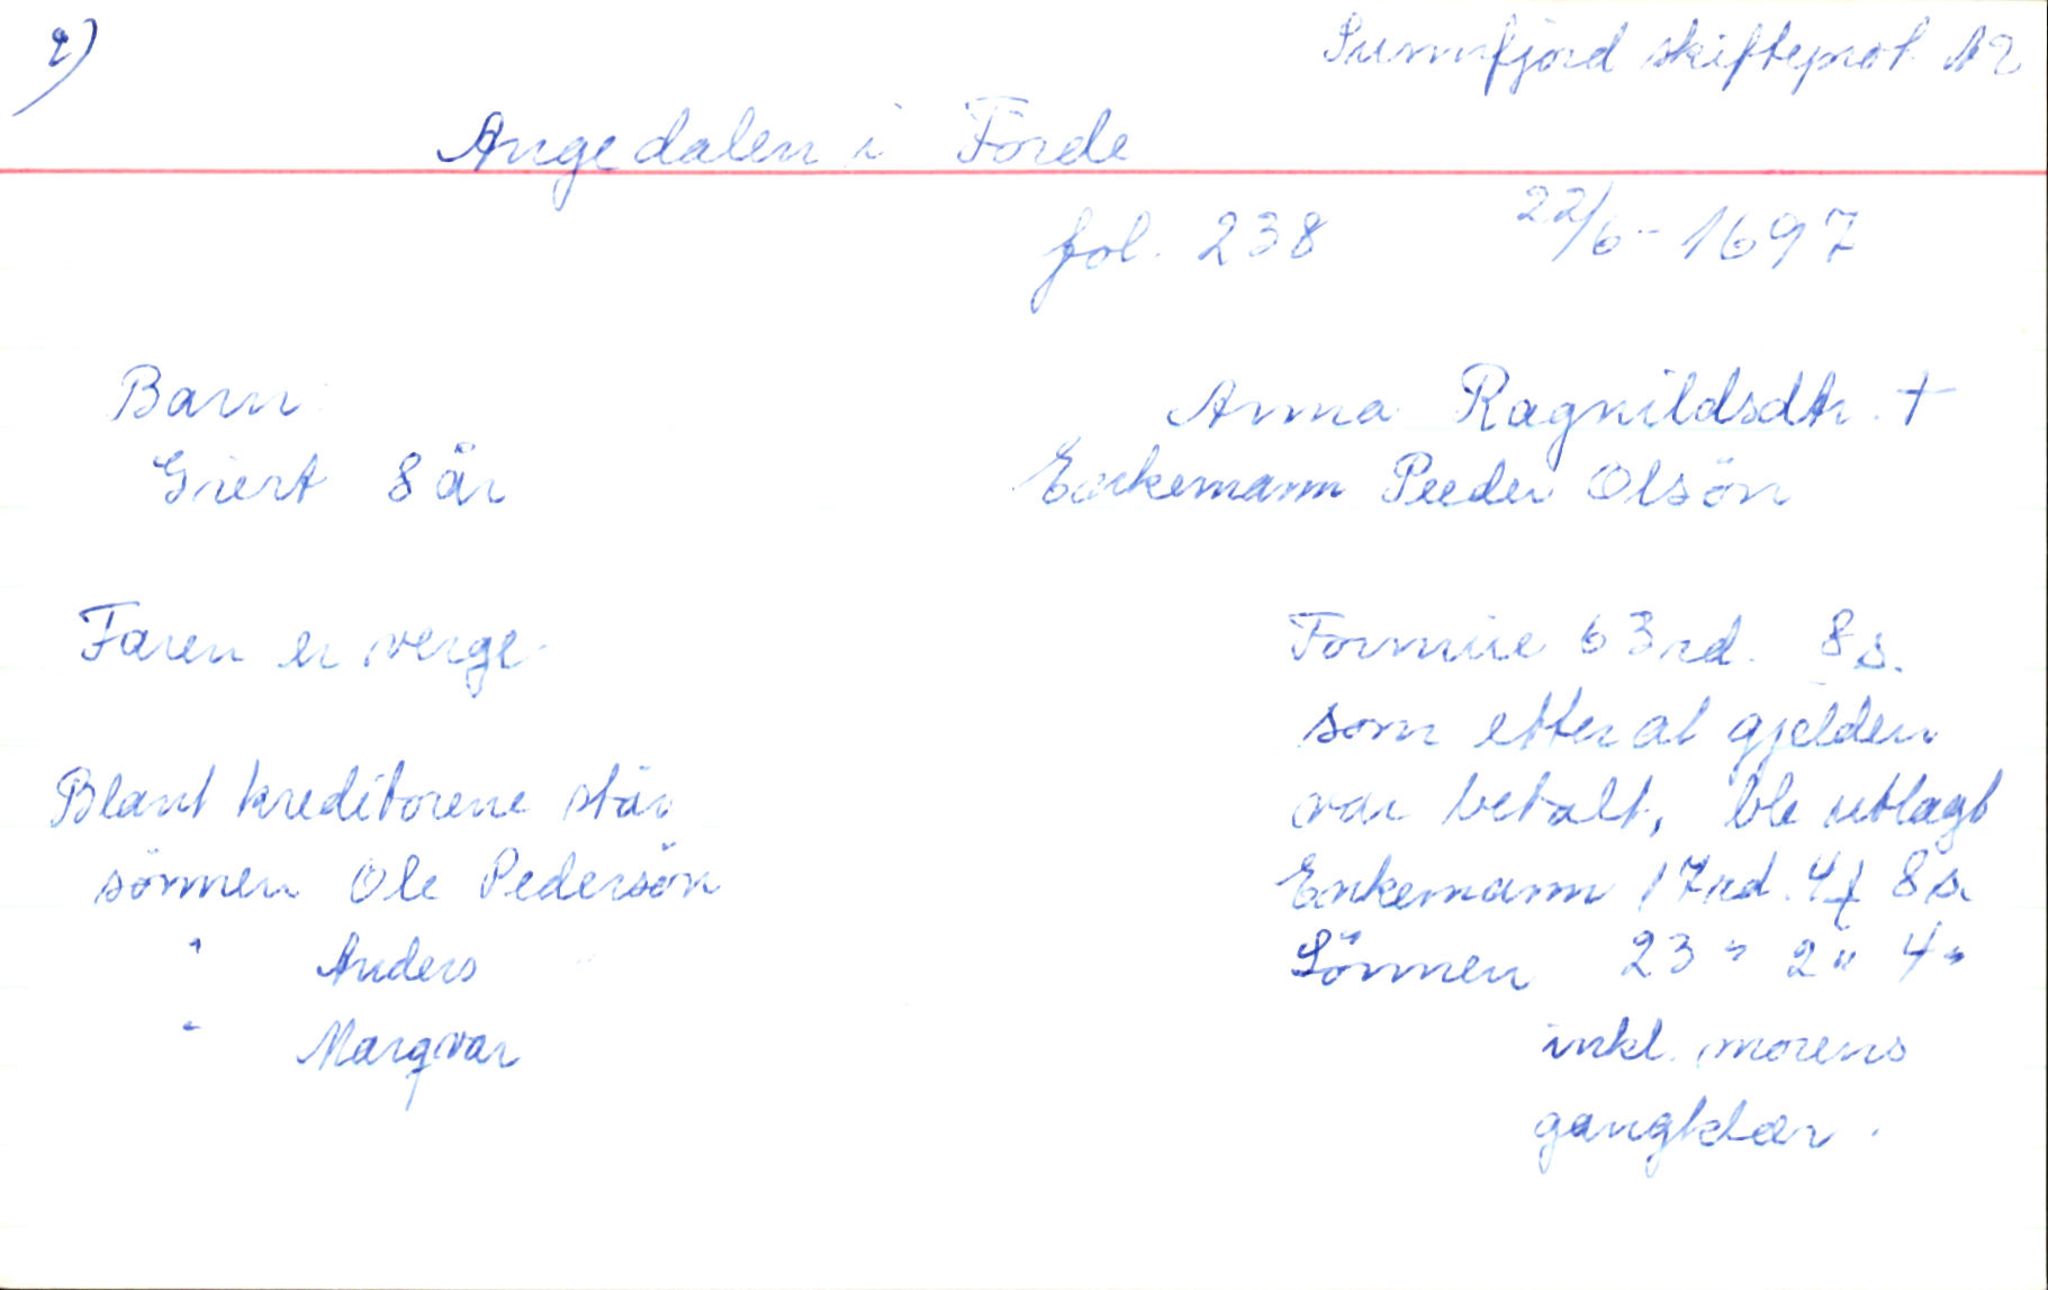 2)
Sunnfjord skifteprot. A2
Angedalen i Förde
fol. 238 22/6-1697
Barn:
Giert 8 år
Anna Ragnildsdtr. †
Enkemann Peeder Olsön
Faren er verge.
Blant kreditorene står
sönnen Ole Pedersön
" Anders "
" Marqvar
Formue 63 rd. 8 s.
som etter at gjelden
var betalt, ble utlagt
Enkemann 17 rd. 4 f 8 s.
Sönnen 23 " 2 " 4 "
inkl. morens
gangklær.